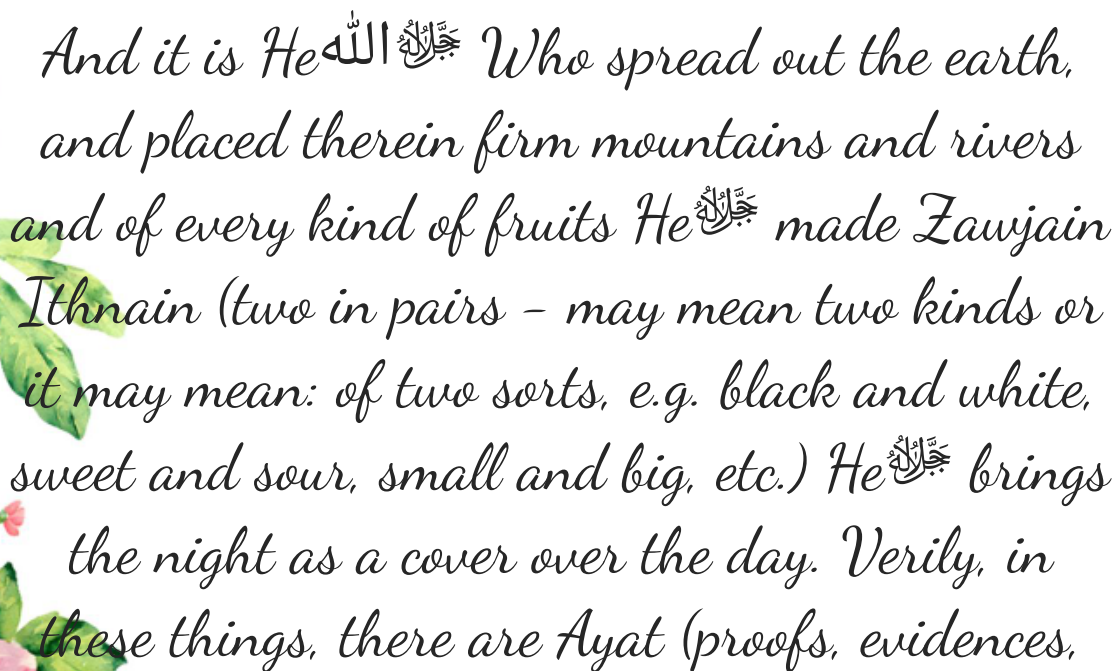 And it is Heالله ﷻ Who spread out the earth,
and placed therein firm mountains and rivers
and of every kind of fruits Heﷻ made Zawjain
Ithnain (two in pairs - may mean two kinds or
it may mean: of two sorts, e.g. black and white,
sweet and sour, small and big, etc.) Heﷻ brings
the night as a cover over the day. Verily, in
these things, there are Ayat (proofs, evidences,